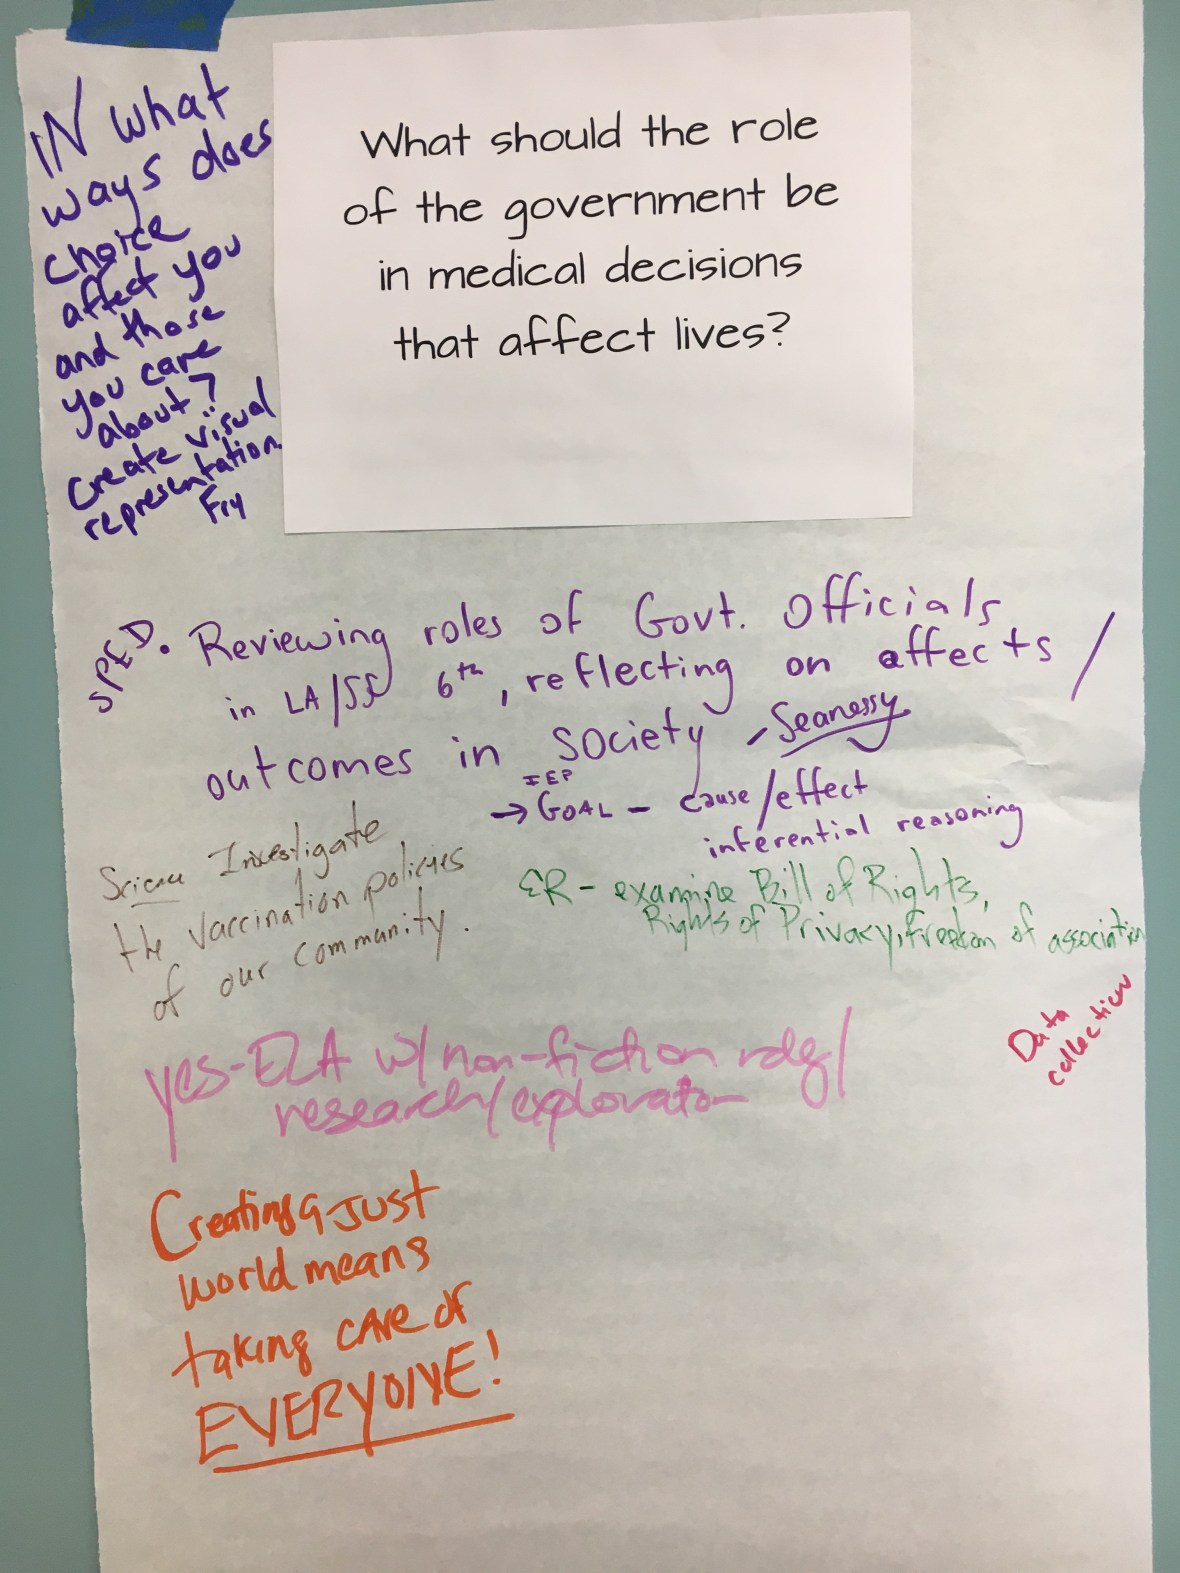 IN what
ways does
choice
affect you
and those
you care
about?
Create visual
representation
Fry
What should the role
of the government be
in medical decisions
that affect lives?
SPED. Reviewing roles of Govt. Officials
in LA/SS 6th, reflecting on affects/
outcomes in society - Seanessy
IEP
→ GOAL - cause/effect
inferential reasoning
Science Investigate
the vaccination policies
of our community.
ER - examine Bill of Rights,
Rights of Privacy, freedom of association
Data
collection
yes-ELA w/ non-fiction rdg/
research/exploration
Creating a Just
world means
taking care of
EVERYONE!